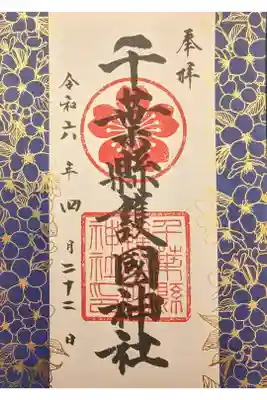 奉拝
千葉縣護國神社
令和六年四月二十二日
千葉縣
護國
神社之印